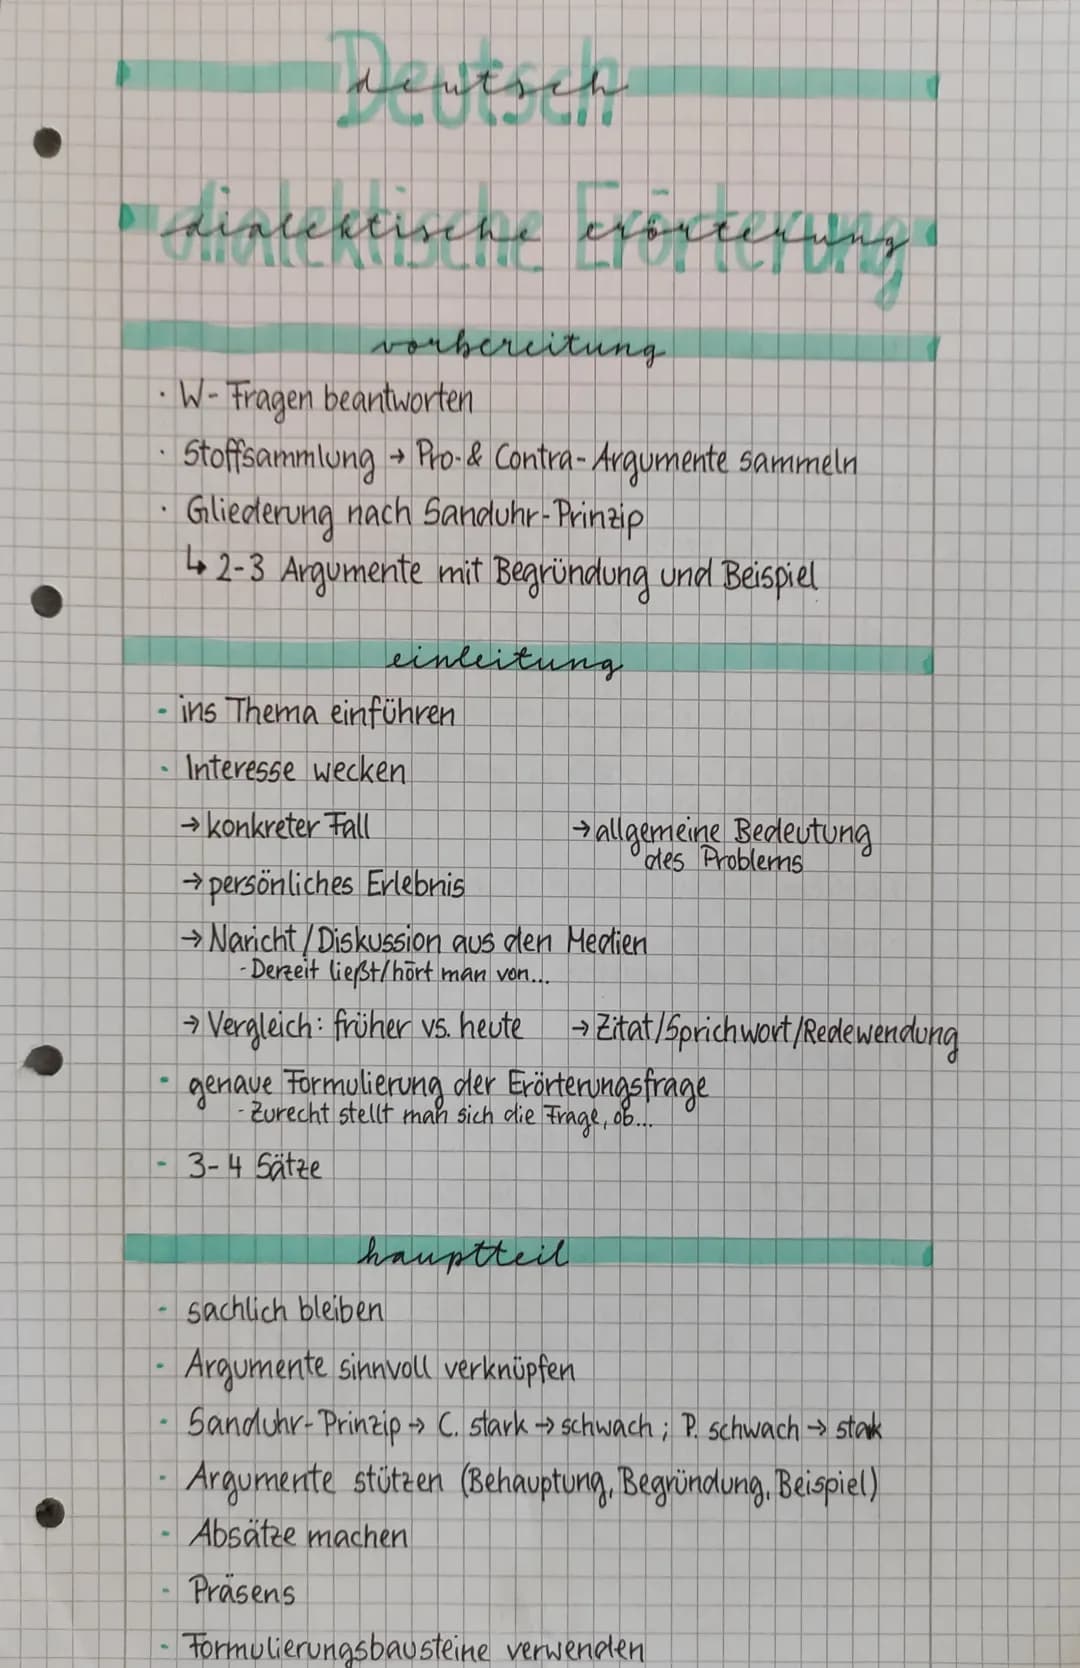 Deutsch
deutsch
dialektische Erörterung
dialektische erörterung
vorbereitung
· W-Fragen beantworten
· Stoffsammlung → Pro-& Contra-Argumente sammeln
· Gliederung nach Sanduhr-Prinzip
↳ 2-3 Argumente mit Begründung und Beispiel
einleitung
- ins Thema einführen
· Interesse wecken
→ konkreter Fall → allgemeine Bedeutung
des Problems
→ persönliches Erlebnis
→ Naricht/Diskussion aus den Medien
- Derzeit ließt/hört man von...
→ Vergleich: früher vs. heute → Zitat/Sprichwort/Redewendung
· genaue Formulierung der Erörterungsfrage
- Zurecht stellt man sich die Frage, ob...
- 3-4 Sätze
hauptteil
- sachlich bleiben
· Argumente sinnvoll verknüpfen
· Sanduhr-Prinzip → C. stark → schwach ; P. schwach → stak
· Argumente stützen (Behauptung, Begründung, Beispiel)
- Absätze machen
- Präsens
- Formulierungsbausteine verwenden